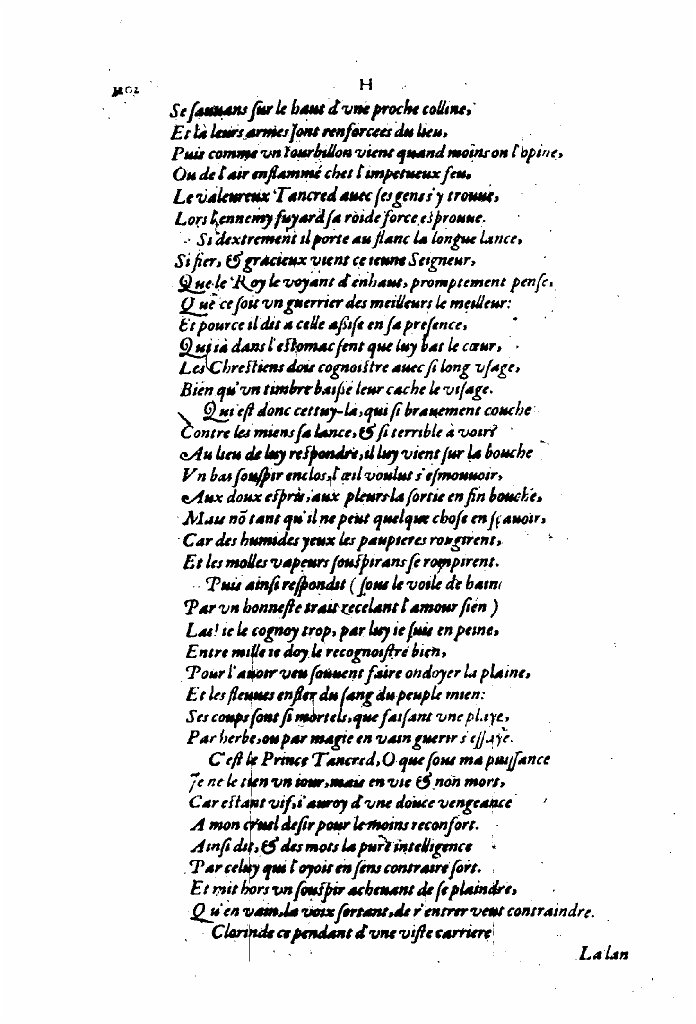 H
Se sauuans sur le haut d'vne proche colline,
Et là leurs armes sont renforcees du lieu,
Puis comme vn tourbillon vient quand moins on l'opine,
Ou de l'air enflammé chet l'impetueux feu,
Le valeureux Tancred auec ses gens s'y trouue,
Lors l'ennemy fuyard sa roide force esprouue.
Si dextrement il porte au flanc la longue lance,
Si fier, & gracieux vient ce ieune Seigneur,
Que le Roy le voyant d'enhaut, promptement pense,
Que ce soit vn guerrier des meilleurs le meilleur:
Et pource il dit a celle assise en sa presence,
Qui ià dans l'estomac sent que luy bat le cœur,
Les Chrestiens dois cognoistre auec si long vsage,
Bien qu'vn timbre baissé leur cache le visage.
Qui est donc cettuy-la, qui si brauement couche
Contre les miens sa lance, & si terrible à voir?
Au lieu de luy respondre, il luy vient sur la bouche
Vn bas souspir enclos, l'œil voulut s'esmouuoir,
Aux doux esprits, aux pleurs la sortie en fin bouche,
Mais nõ tant qu'il ne peut quelque chose en sçauoir,
Car des humides yeux les paupieres rougirent,
Et les molles vapeurs souspirans se rompirent.
Puis ainsi respondit (sous le voile de haine
Par vn honneste trait recelant l'amour sien)
Las! ie le cognoy trop, par luy ie suis en peine,
Entre mille ie doy le recognoistre bien,
Pour l'auoir veu souuent faire ondoyer la plaine,
Et les fleuues enfler du sang du peuple mien:
Ses coups sont si mortels, que faisant vne playe,
Par herbe, ou par magie en vain guerir s'essaye.
C'est le Prince Tancred, O que sous ma puissance
Je ne le tien vn iour, mais en vie & non mort,
Car estant vif, i'auroy d'vne douce vengeance
A mon cruel desir pour le moins reconfort.
Ainsi dit, & des mots la pure intelligence
Par celuy qui l'oyoit en sens contraire sort.
Et mit hors vn souspir acheuant de se plaindre,
Qu'en vain, la voix sortant, de r'entrer veut contraindre.
Clorinde ce pendant d'vne viste carriere
La lan